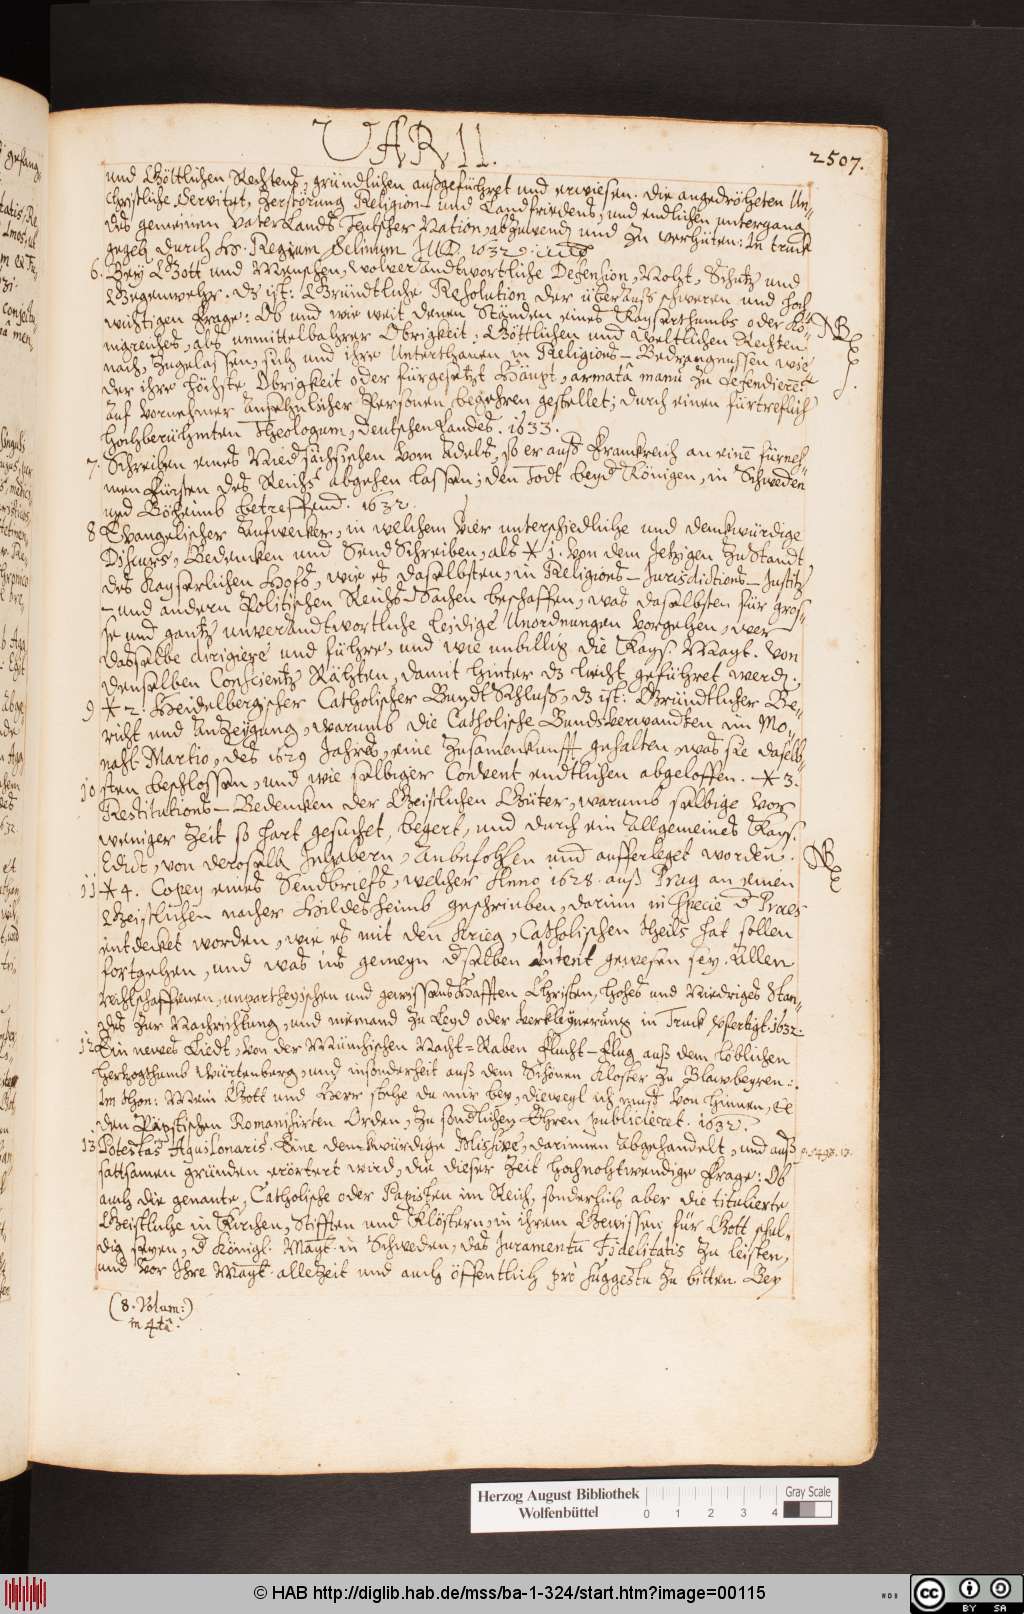 VAR II.
2507.
und Göttlichen Rechtens, gründlichen außgeführet und erwiesen. Die angedröheten Un-
Christliche Servitut, Zerstörung Religion- und Landfriedens, und endlichen untergang
des gemeinen Vaterlands Teutscher Nation, abzuwenden und zu verhüten: In truck
gegeb. durch H. Regium Selinum JUD. 1632.
6. Bey Gott und Menschen, wolverandtwortliche Defension, Noht, Schutz und
Gegenwehr. Dz ist: Gründtliche Resolution der überauß schweren und hoch
wichtigen frage: Ob und wie weit denen Ständen eines Kayserthumbs oder Kö-
nigreiches, als unmittelbahrer Obrigkeit, Göttlichen und Weltlichen Rechten
nach, zugelassen, sich und ihre Unterthanen in Religions- Bedrangnussen wie
der ihre höchste Obrigkeit oder fürgesetzt Häupt, armatâ manû zu defendieren
Auf vornehmer ansehnlicher Personen begehren gestellet; durch einen fürtreflich
hochberühmten Theologum, deutschen Landes. 1633.
NB
7. Schreiben eines Niedsächsischen vom Adels, so er auß Frankreich an eine fürneh-
men Fürsten des Reichs abgehen lassen; den Todt beyd Königen, in Schweden
und Böheimb betreffend. 1632.
8 Evangelischer Aufwecker, in welchem vier unterschiedliche und denkwürdige
Discurs, Bedencken und Send Schreiben, als * 1. Von dem Jetzigen Zustandt
des Kayserlichen Hofs, wie es daselbsten, in Religions- Jurisdictions- Justitz
-und andern Politischen Reichs-Sachen beschaffen, was daselbsten für gros-
se und gantz unverandtwortliche leidige Unordnungen vorgehen, wer
dasselbe dirigiere und führe, und wie unbillig die Kays. Mayt. von
denselben Conscientz Rähten, damit hinter dz liecht geführet werd.
9 * 2. Heidelbergischer Catholischer Bundt Schluß, dz ist: Gründtlicher Be-
richt und Anzeygung, warumb die Catholische Bundsverwandten im Mo-
naht Martio, des 1629 Jahres, eine Zusamenkunfft gehalten, was sie daselb-
10 sten beschlossen, und wie selbiger Convent endtlichen abgeloffen. * 3.
Restitutions- Bedencken der Geistlichen Güter, warumb selbige vor
weniger Zeit so hart gesuchet, begert, und durch ein Allgemeines Kays.
Edict, von deroselb. Inhabern, anbefohlen und aufferleget worden.
NB
11 * 4. Copey eines Sendbriefs, welcher Anno 1628. auß Prag an einen
Geistlichen nacher Hildesheimb geschrieben, darinn in specie d Proces
entdecket worden, wie es mit den Krieg, Catholischen theils hat sollen
fortgehen, und was ins gemeyn dselben Intent gewesen sey. Allen
rechtschaffenen, unpartheyischen und gewissenshafften Christen, hohes und Niedriges Stan-
des zur Nachrichtung, und niemand zu Leyd oder verkleynerung in Truck verfertigt. 1632.
12 Ein newes Liedt, von der Münchischen Nacht=Raben flucht-flug auß dem löblichen
Herzogthumb Würtenberg, und insonderheit auß dem Schönen Kloster zu Blawbeyren:
Im thon: Mein Gott und Herr stehe du mir bey, dieweyl ich muß von hinnen, etc
den Päpstischen Romanisirten Orden, zu sondlichen Ehren publicieret. 1632.
13. Potestas Aquilonaris. Eine denckwürdige Missive, darinnen abgehandelt, und auß
sattsamen gründen erörtert wird, die dieser Zeit hochnohtwendige frage: Ob
auch die genante, Catholische oder Papisten im Reich, sonderlich aber die titulierte
Geistliche in Kirchen, Stifften und Klöstern, in ihrem Gewissen für Gott schul-
dig seyen, d Königl. Mayt. in Schweden, das Juramentum Fidelitatis zu leisten,
und vor Ihre Mayt. allezeit und auch öffentlich pro suggestu zu bitten. Bey
(8. Volum:)
in 4tâ.
Herzog August Bibliothek
Wolfenbüttel
0 1 2 3 4
Gray Scale
© HAB http://diglib.hab.de/mss/ba-1-324/start.htm?image=00115
CC BY SA